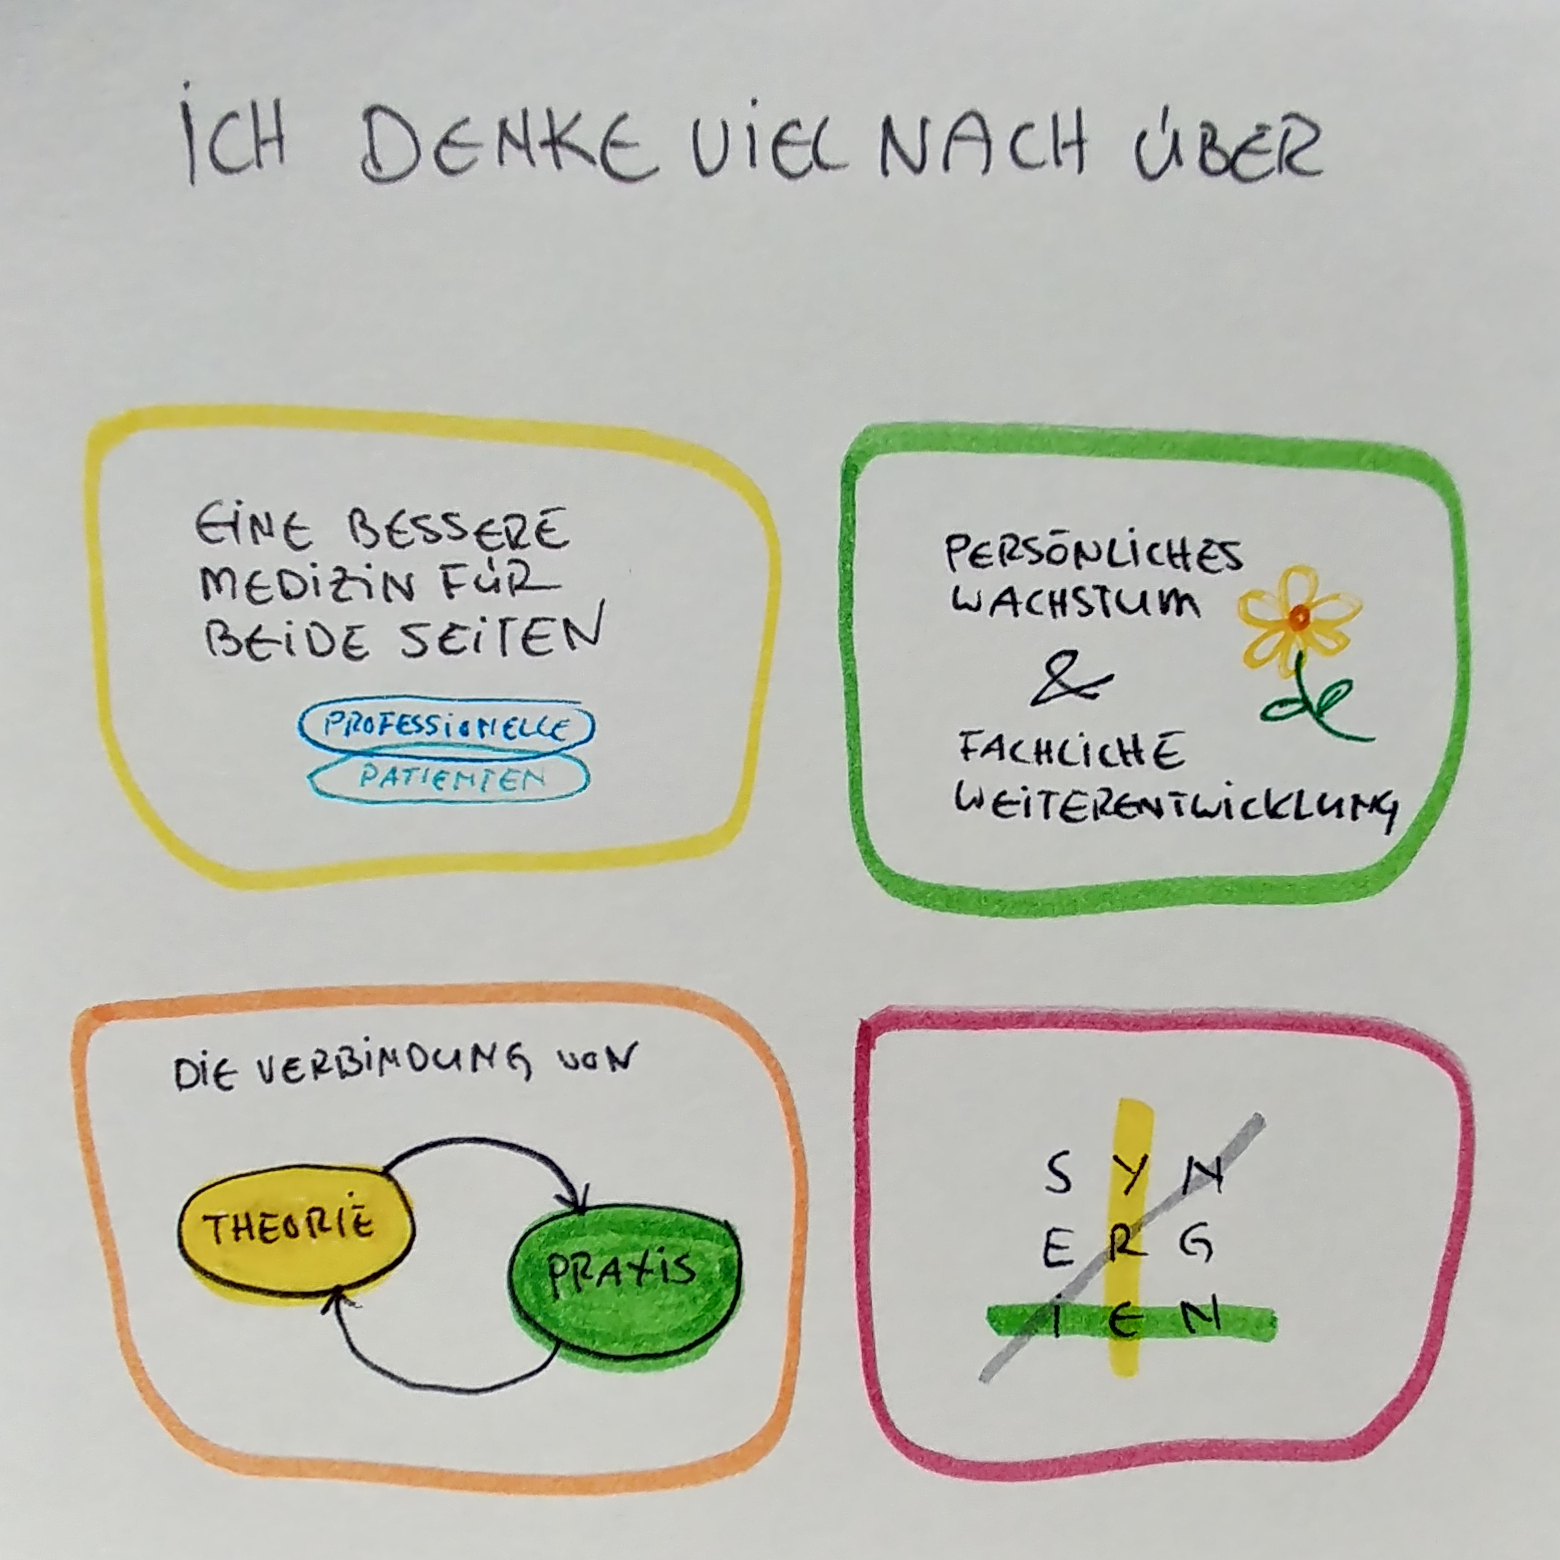 ICH DENKE VIEL NACH ÜBER
EINE BESSERE
MEDIZIN FÜR
BEIDE SEITEN
PROFESSIONELLE
PATIENTEN
PERSÖNLICHES
WACHSTUM
&
FACHLICHE
WEITERENTWICKLUNG
DIE VERBINDUNG VON
THEORIE
PRAXIS
S Y N
E R G
I E N